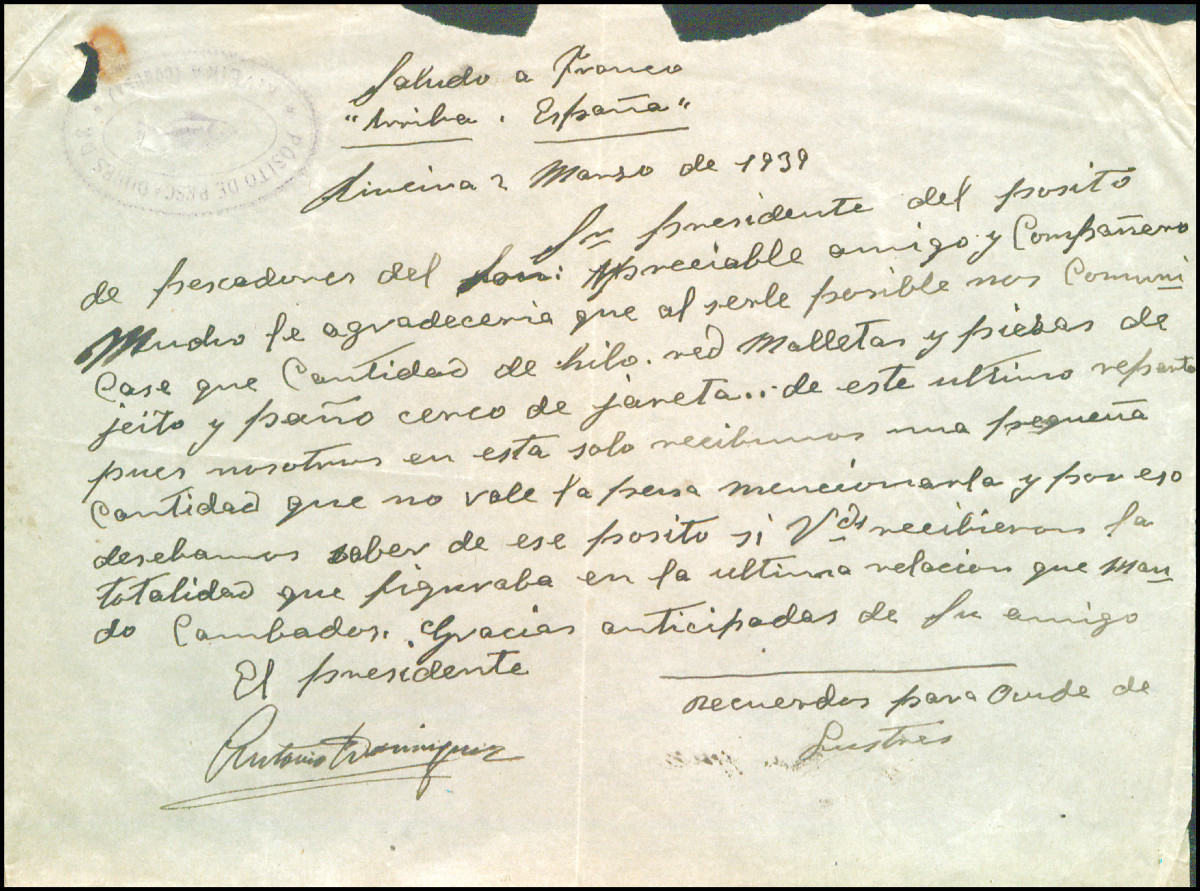 PÓSITO DE PESCADORES DE
Saludo a Franco
"Arriba. España"
2 Marzo de 1939
Sr presidente del posito
de pescadores del Son: Apreciable amigo y Compañero
Mucho le agradeceria que al serle posible nos Comuni
Case que Cantidad de hilo. red Malletas y piezas de
jeito y paño cerco de jareta... de este ultimo reparto
pues nosotros en esta solo recibimos una pequeña
Cantidad que no vale la pena mencionarla y por eso
desebamos saber de ese posito si Vds recibieron la
totalidad que figuraba en la ultima relacion que Man
do Cambados. Gracias anticipadas de Su amigo
El presidente
recuerdos para de
Antonio Dominguez
Lustres